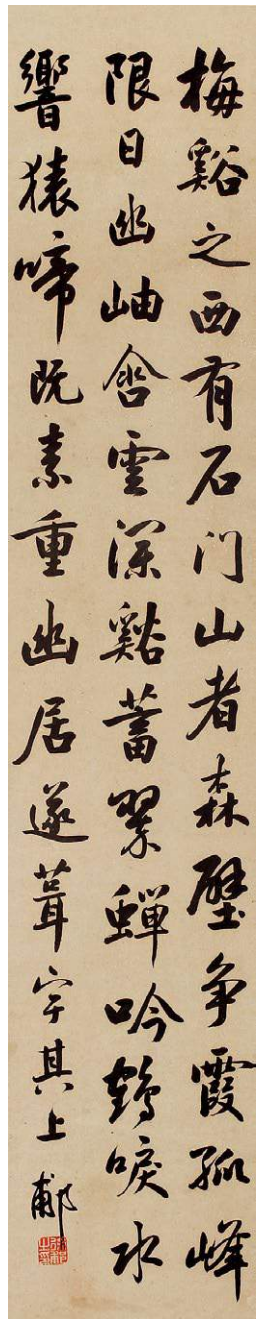 梅谿之西有石門山者森壁争霞孤峰
限日幽岫含雲深谿蓄翠蟬吟鶴唳水
響猿啼既素重幽居遂葺宇其上
郙